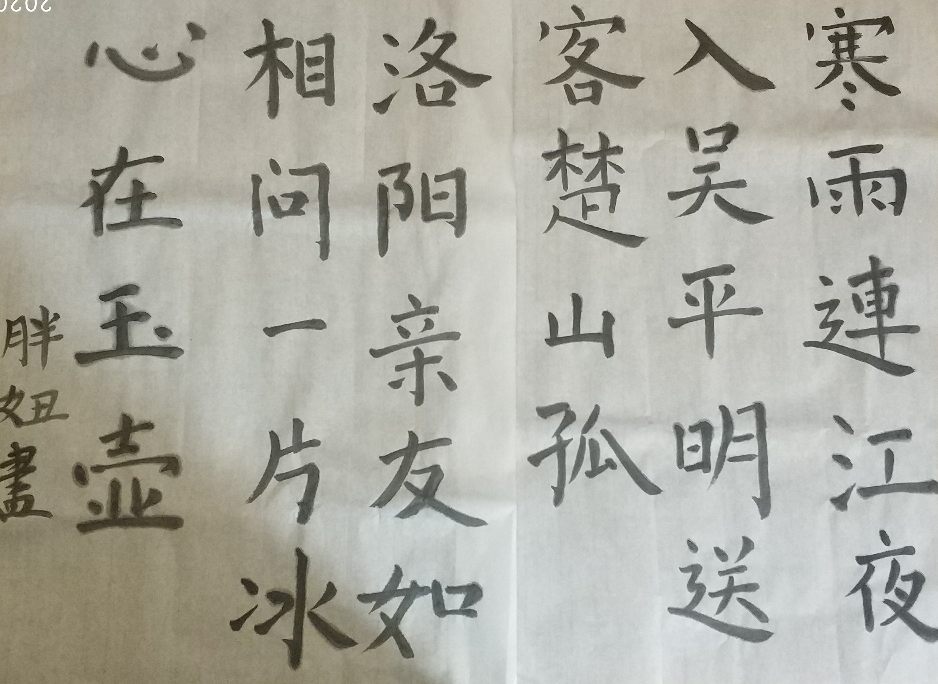 寒雨連江夜
入吴平明送
客楚山孤
洛阳亲友如
相问一片冰
心在玉壶
胖妞書
2020